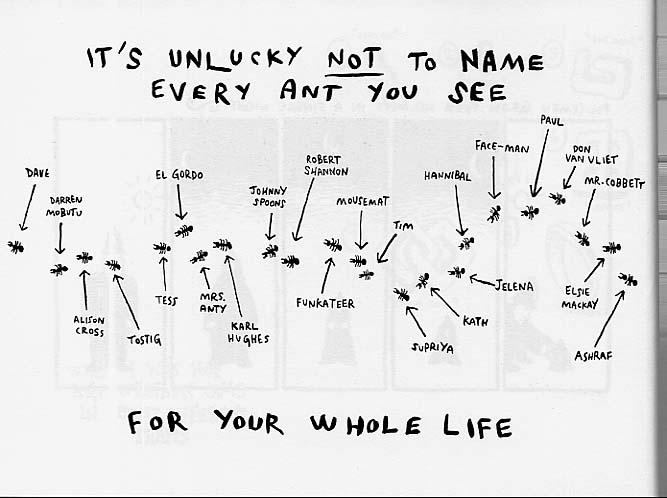 IT'S UNLUCKY NOT TO NAME
EVERY ANT YOU SEE
DAVE
DARREN
MOBUTU
ALISON
CROSS
TOSTIG
TESS
EL GORDO
MRS.
ANTY
KARL
HUGHES
JOHNNY
SPOONS
ROBERT
SHANNON
FUNKATEER
MOUSEMAT
TIM
SUPRIYA
KATH
HANNIBAL
JELENA
FACE-MAN
PAUL
DON
VAN VLIET
MR. COBBETT
ELSIE
MACKAY
ASHRAF
FOR YOUR WHOLE LIFE